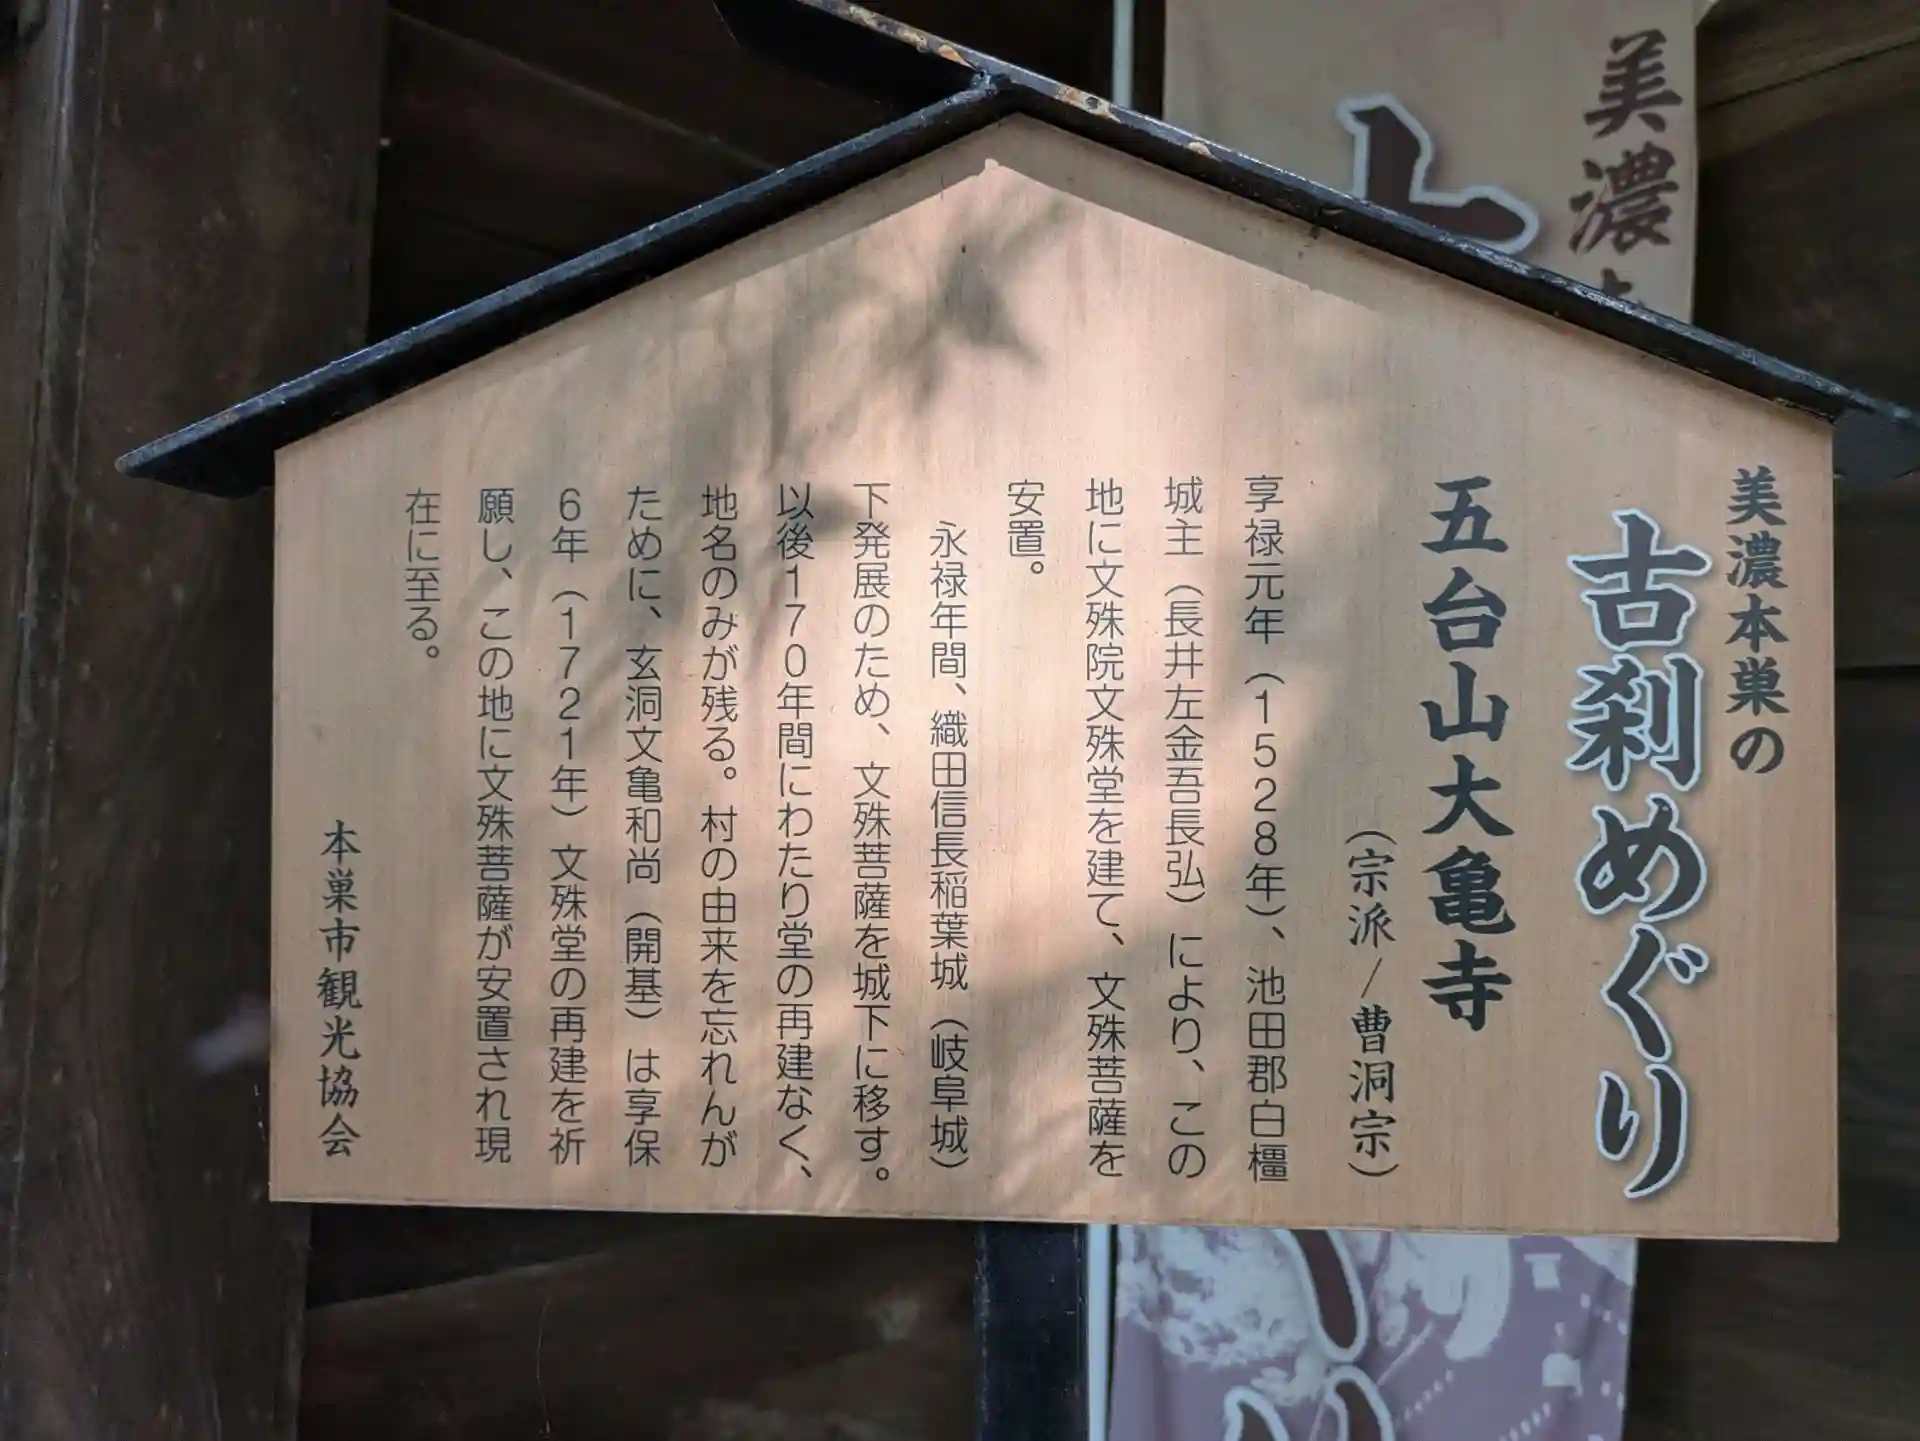 美濃本巣の
古刹めぐり
五台山大亀寺
（宗派／曹洞宗）
享禄元年（1528年）、池田郡白橿
城主（長井左金吾長弘）により、この
地に文殊院文殊堂を建て、文殊菩薩を
安置。
永禄年間、織田信長稲葉城（岐阜城）
下発展のため、文殊菩薩を城下に移す。
以後170年間にわたり堂の再建なく、
地名のみが残る。村の由来を忘れんが
ために、玄洞文亀和尚（開基）は享保
6年（1721年）文殊堂の再建を祈
願し、この地に文殊菩薩が安置され現
在に至る。
本巣市観光協会
美濃